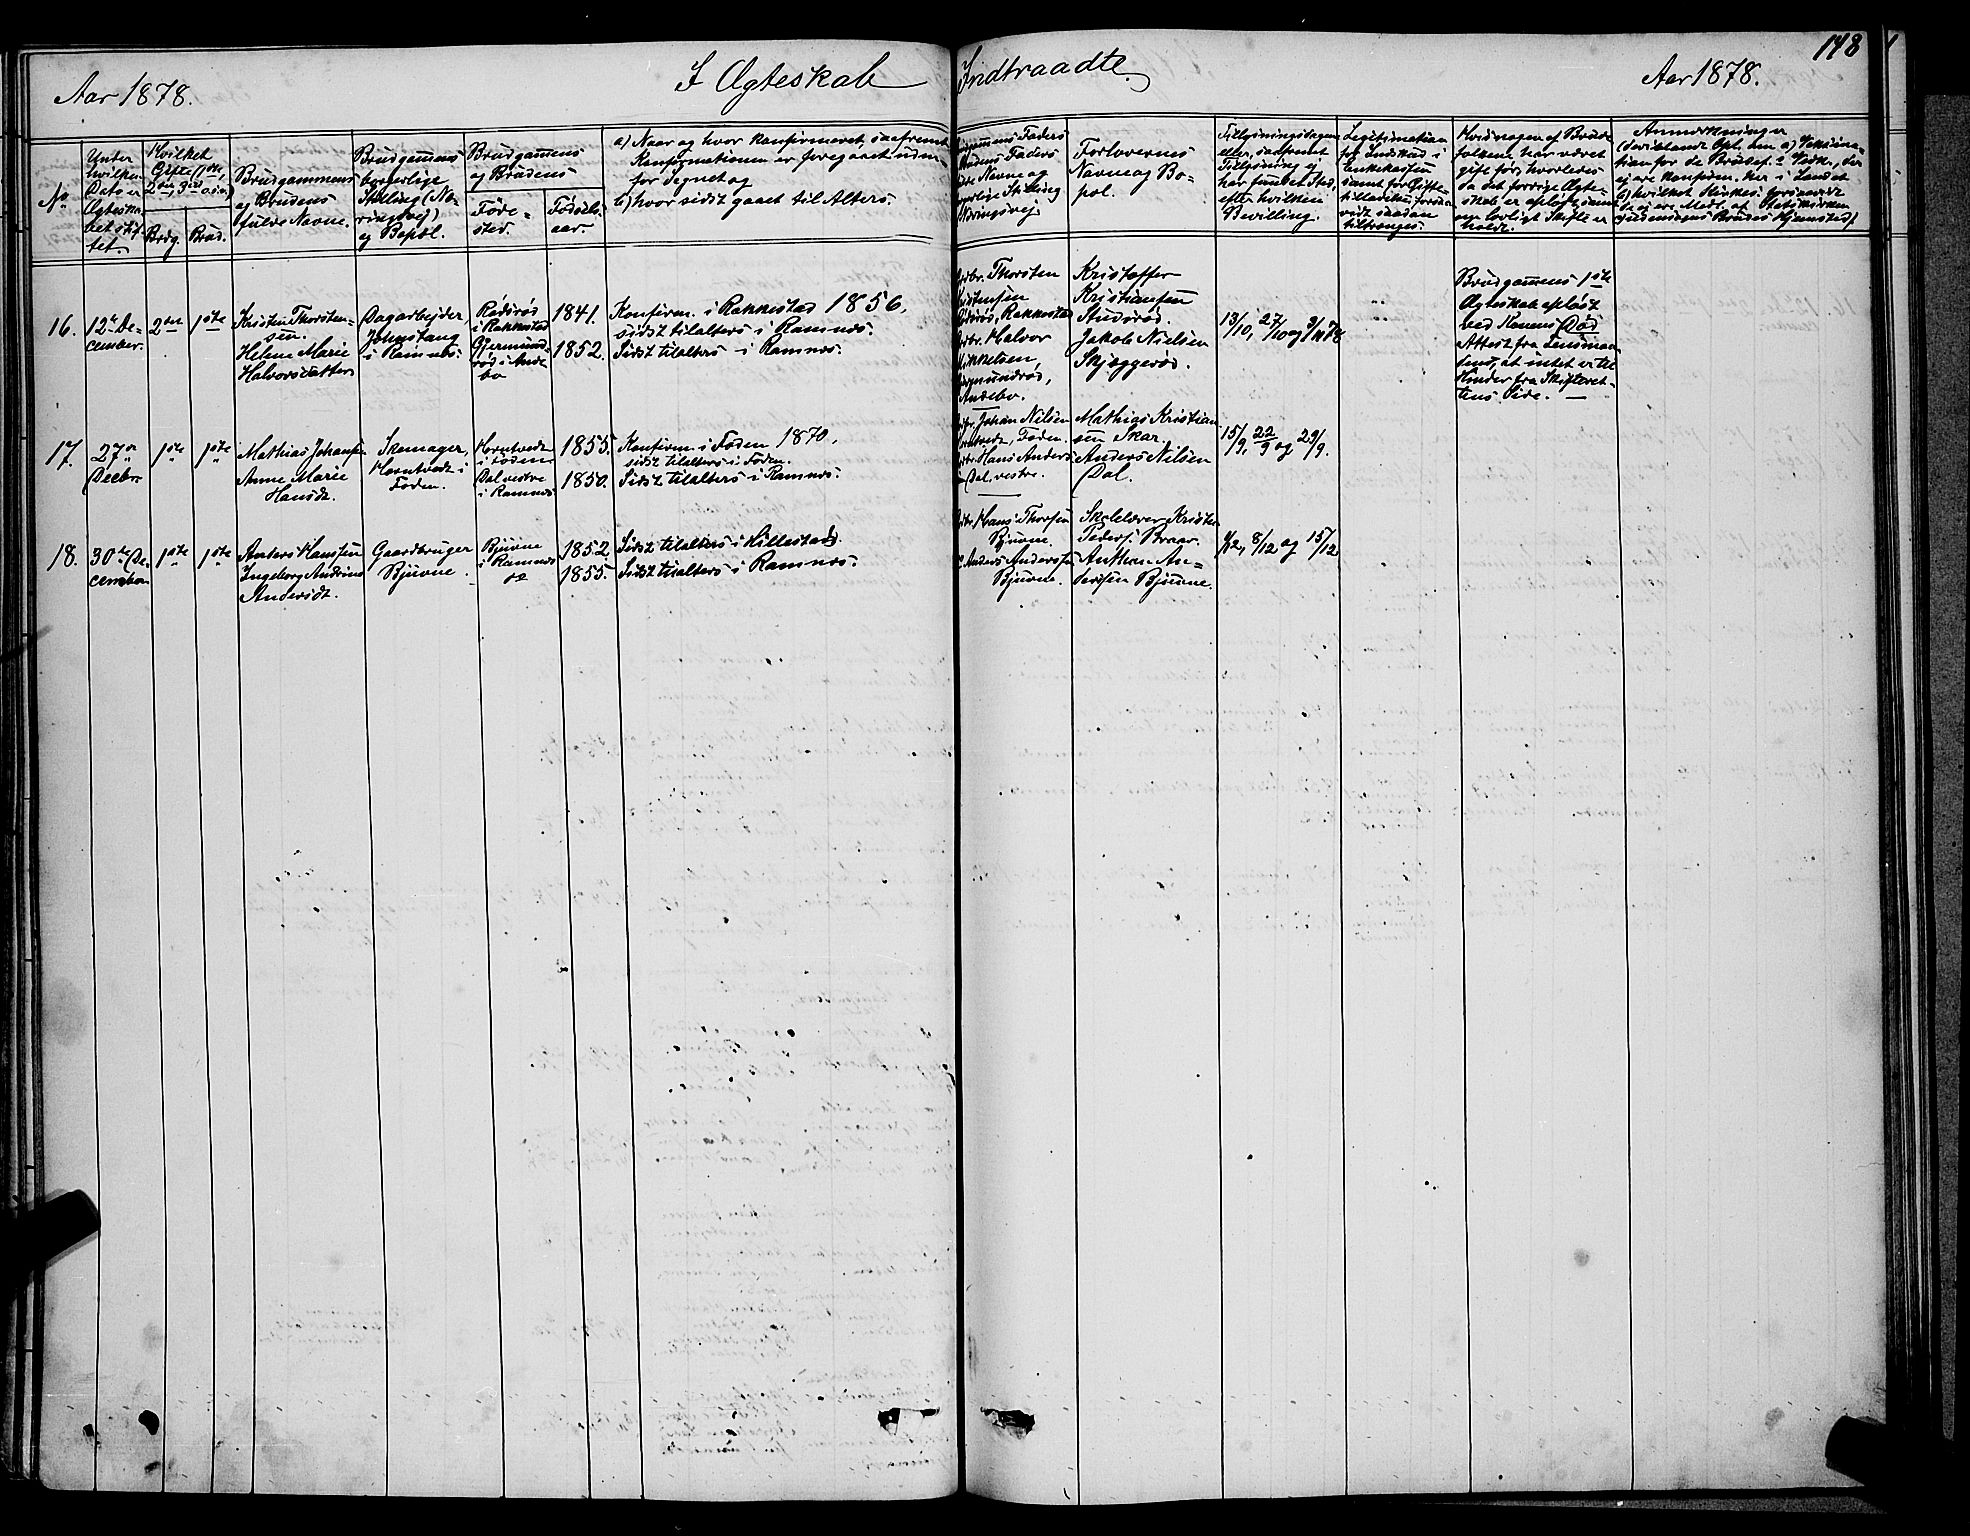 148
Aar 1878.
I Ægteskab Indtraadte
Aar 1878.
No
Under
hvilken
Dato er
Ægteska-
bet stif-
tet.
Hvilket
Gifte (1ste,
2det, 3die o.s.v.)
Brdg.
Brud.
Brudgammens
og Brudens
fulde Navne.
Brudgammens
borgerlige
Stilling (Næ-
ringsvej)
og Bopæl.
Brudgammens
og Brudens
Føde-
sted.
Fødsels-
aar.
a) Naar og hvor konfirmeret, saafremt
Konfirmationen er foregaaet uden-
for Sognet og
b) hvor sidst gaaet til Alters.
Faders
Faders
Navne og
Stilling
Næringsvej
Forlovernes
Navne og Bo-
pæl.
Tillysningsdagene
eller, saafremt
Tillysning ej
har fundet Sted,
efter hvilken
Bevilling.
Legitimation
for Indskud i
Enkekassen
samt for Gifte-
tilladelse, forsaa-
vidt saadan
tiltrænges.
Hvis nogen af Brude-
folkene har været
gift før, hvorledes
da det forrige Ægte-
skab er opløst, samt
om lovligt Skifte er
holdt.
Anmærkninger
16.
12te De-
cember.
2det
1ste
Kristen Thorsten-
sen.
Helene Marie
Halvorsdatter
Dagarbejder,
Johnstang
i Ramnes.
Rødsrød
i Rakkestad
Gjermund-
rød i Ande-
bo
1841.
1852.
Konfirm. i Rakkestad 1856,
sidst tilalters i Ramnes.
Sidst tilalters i Ramnes.
Thorsten
Kristensen
Rødsrød, Rakkestad
Halvor
Mikkelsen,
Gjermundrød,
Andebo.
Kristoffer
Kristiansen
Andsrød.
Jakob Nielsen
Skjæggerød.
13/10, 27/10 og 3/11 78
Brudgammens 1ste
Ægteskab opløst
ved Konens Død
Attest fra Lensman-
den, at intet er til
Hinder fra Skifteret-
tens Side.
17.
27de
Decbr
1ste
1ste
Mathias Johansen
Anne Marie
Hansd.
Skomager,
Horntvedt i
Foden.
Horntvedt
i Foden
Dal vestre
i Ramnes
1855.
1850.
Konfirm. i Foden 1870,
sidst tilalters i Foden.
Sidst tilalters i Ramnes.
Johan Nilsen
Horntvedt, Foden.
Hans Anders
Dal, vestre.
Mathias Kristian
sen Skar,
Anders Nilsen
Dal.
15/9, 22/9 og 29/9.
18.
30te De-
cember
1ste
1ste
Anders Hansen
Ingeborg Andrine
Andersdt.
Gaardbruger
Bjuvne
Bjuvne
i Ramnes
1852.
1855.
Sidst tilalters i Hillestad.
Sidst tilalters i Ramnes.
Hans Thorsen
Bjuvne.
Anders Andersen
Bjuvne.
Skolelærer Kristen
Peders. Braar.
Anthon An-
dersen Bjuvne.
1/12, 8/12 og 15/12